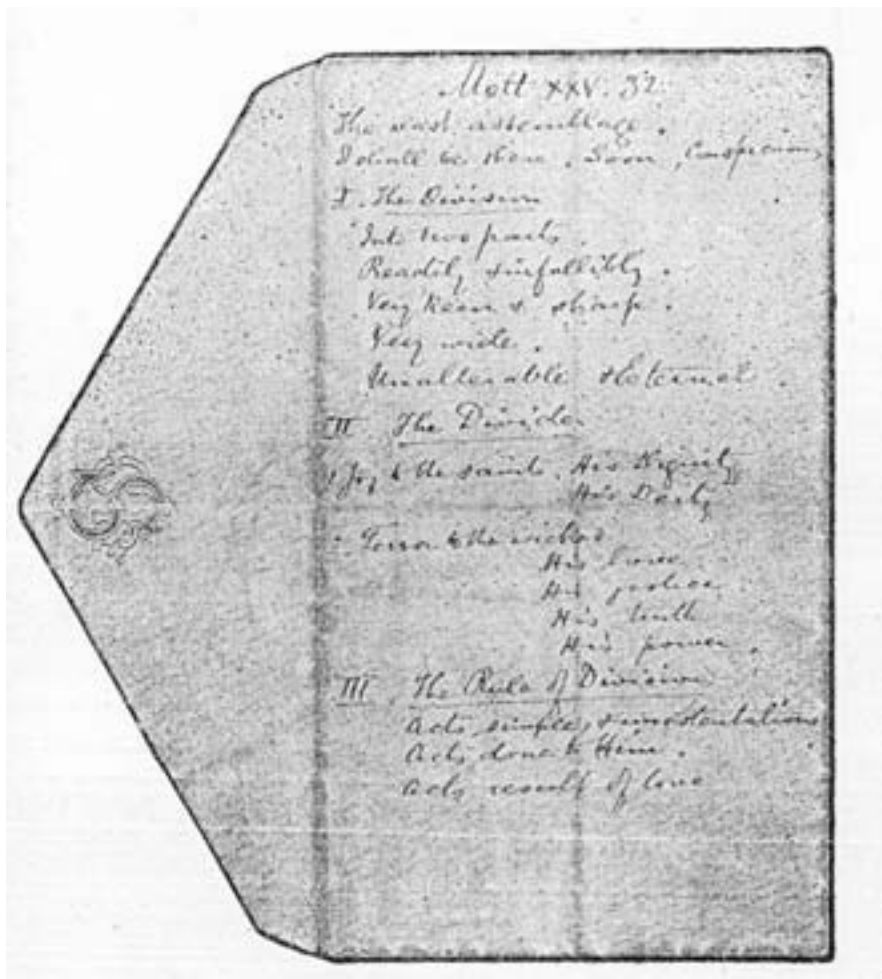 Matt XXV. 32.
The vast assemblage.
I shall be there. Soon, Conspicuous
I. The Division
Into two parts.
Readily & infallibly.
Very keen & sharp.
Very wide.
Unalterable & Eternal.
II. The Divider
1 Joy to the saints. His Dignity
His
2. Terror to the wicked
His love
His justice
His truth
His power.
III. The Rule of Division
Acts, simple, & unostentatious
Acts, done to Him.
Acts result of love